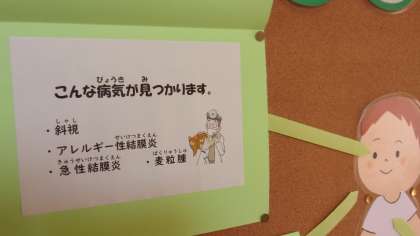 びょうき み
こんな病気が見つかります。
しゃし
・斜視
せいけつまくえん
・アレルギー性結膜炎
きゅうせいけつまくえん ばくりゅうしゅ
・急性結膜炎 ・麦粒腫